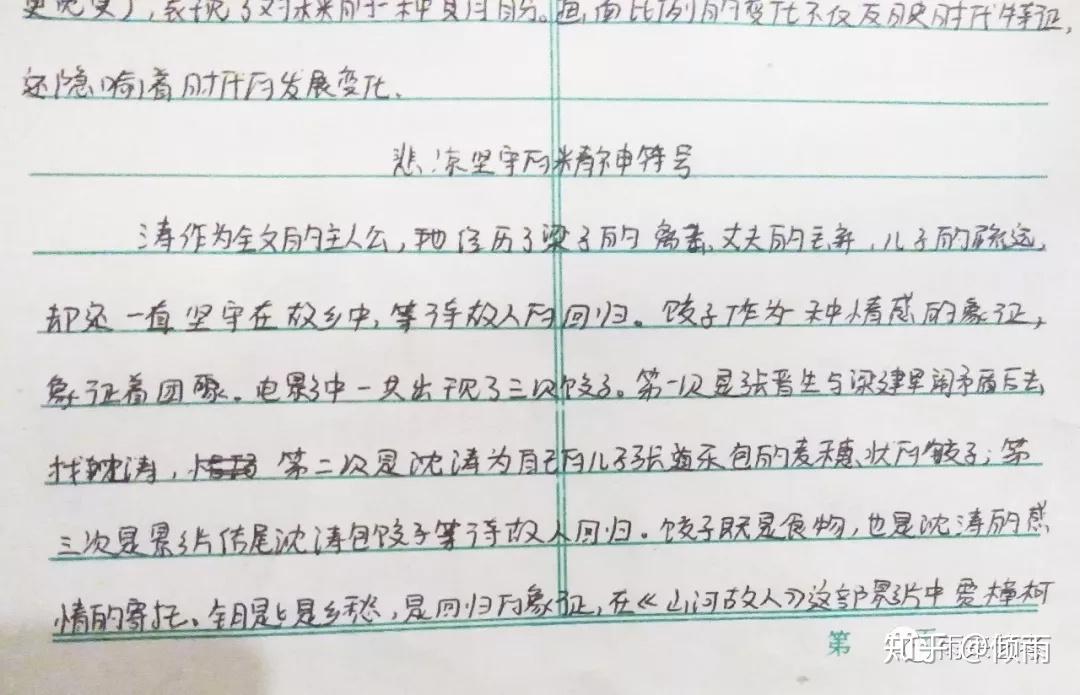 表现了对未来的一种复归的。画面比例的变化不仅反映时代特征,
还隐喻着时代的发展变化.
悲凉坚守的精神符号
涛作为全文的主人公,她经历了梁子的离去、丈夫的,儿子的疏远,
却还一直坚守在故乡中,等待故人的回归。饺子作为一种情感的象征,
象征着团聚。电影中一共出现了三次饺子。第一次是张晋生与梁建军闹矛盾后去
找沈涛, 第二次是沈涛为自己的儿子张道乐包的麦穗状的饺子;第
三次是影片结尾沈涛包饺子等待故人回归。饺子既是食物,也是沈涛的感
情的寄托、是乡愁,是回归的象征,在《山河故人》这部影片中贾樟柯
第 页
知乎 @倾雨